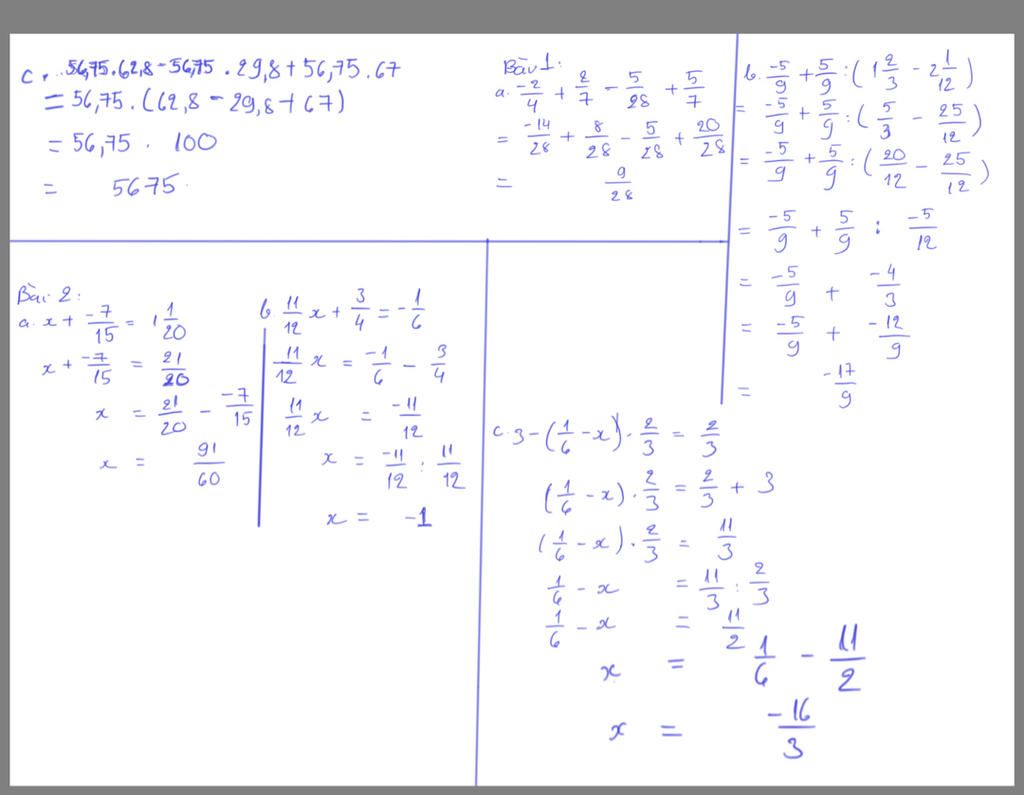 c. 56,75.62,8-56,75.29,8+56,75.67
= 56,75.(62,8-29,8+67)
= 56,75 . 100
= 5675
Bài 1:
a. -2/4 + 2/7 - 5/28 + 5/7
= -14/28 + 8/28 - 5/28 + 20/28
= 9/28
b. -5/9 + 5/9 : (1 2/3 - 2 1/12)
= -5/9 + 5/9 : (5/3 - 25/12)
= -5/9 + 5/9 : (20/12 - 25/12)
= -5/9 + 5/9 : -5/12
= -5/9 + -4/3
= -5/9 + -12/9
= -17/9
Bài 2:
a. x + -7/15 = 1 1/20
x + -7/15 = 21/20
x = 21/20 - -7/15
x = 91/60
b 11/12 x + 3/4 = -1/6
11/12 x = -1/6 - 3/4
11/12 x = -11/12
x = -11/12 : 11/12
x = -1
c. 3 - (1/6 - x) . 2/3 = 2/3
(1/6 - x) . 2/3 = 2/3 + 3
(1/6 - x) . 2/3 = 11/3
1/6 - x = 11/3 : 2/3
1/6 - x = 11/2
x = 1/6 - 11/2
x = -16/3